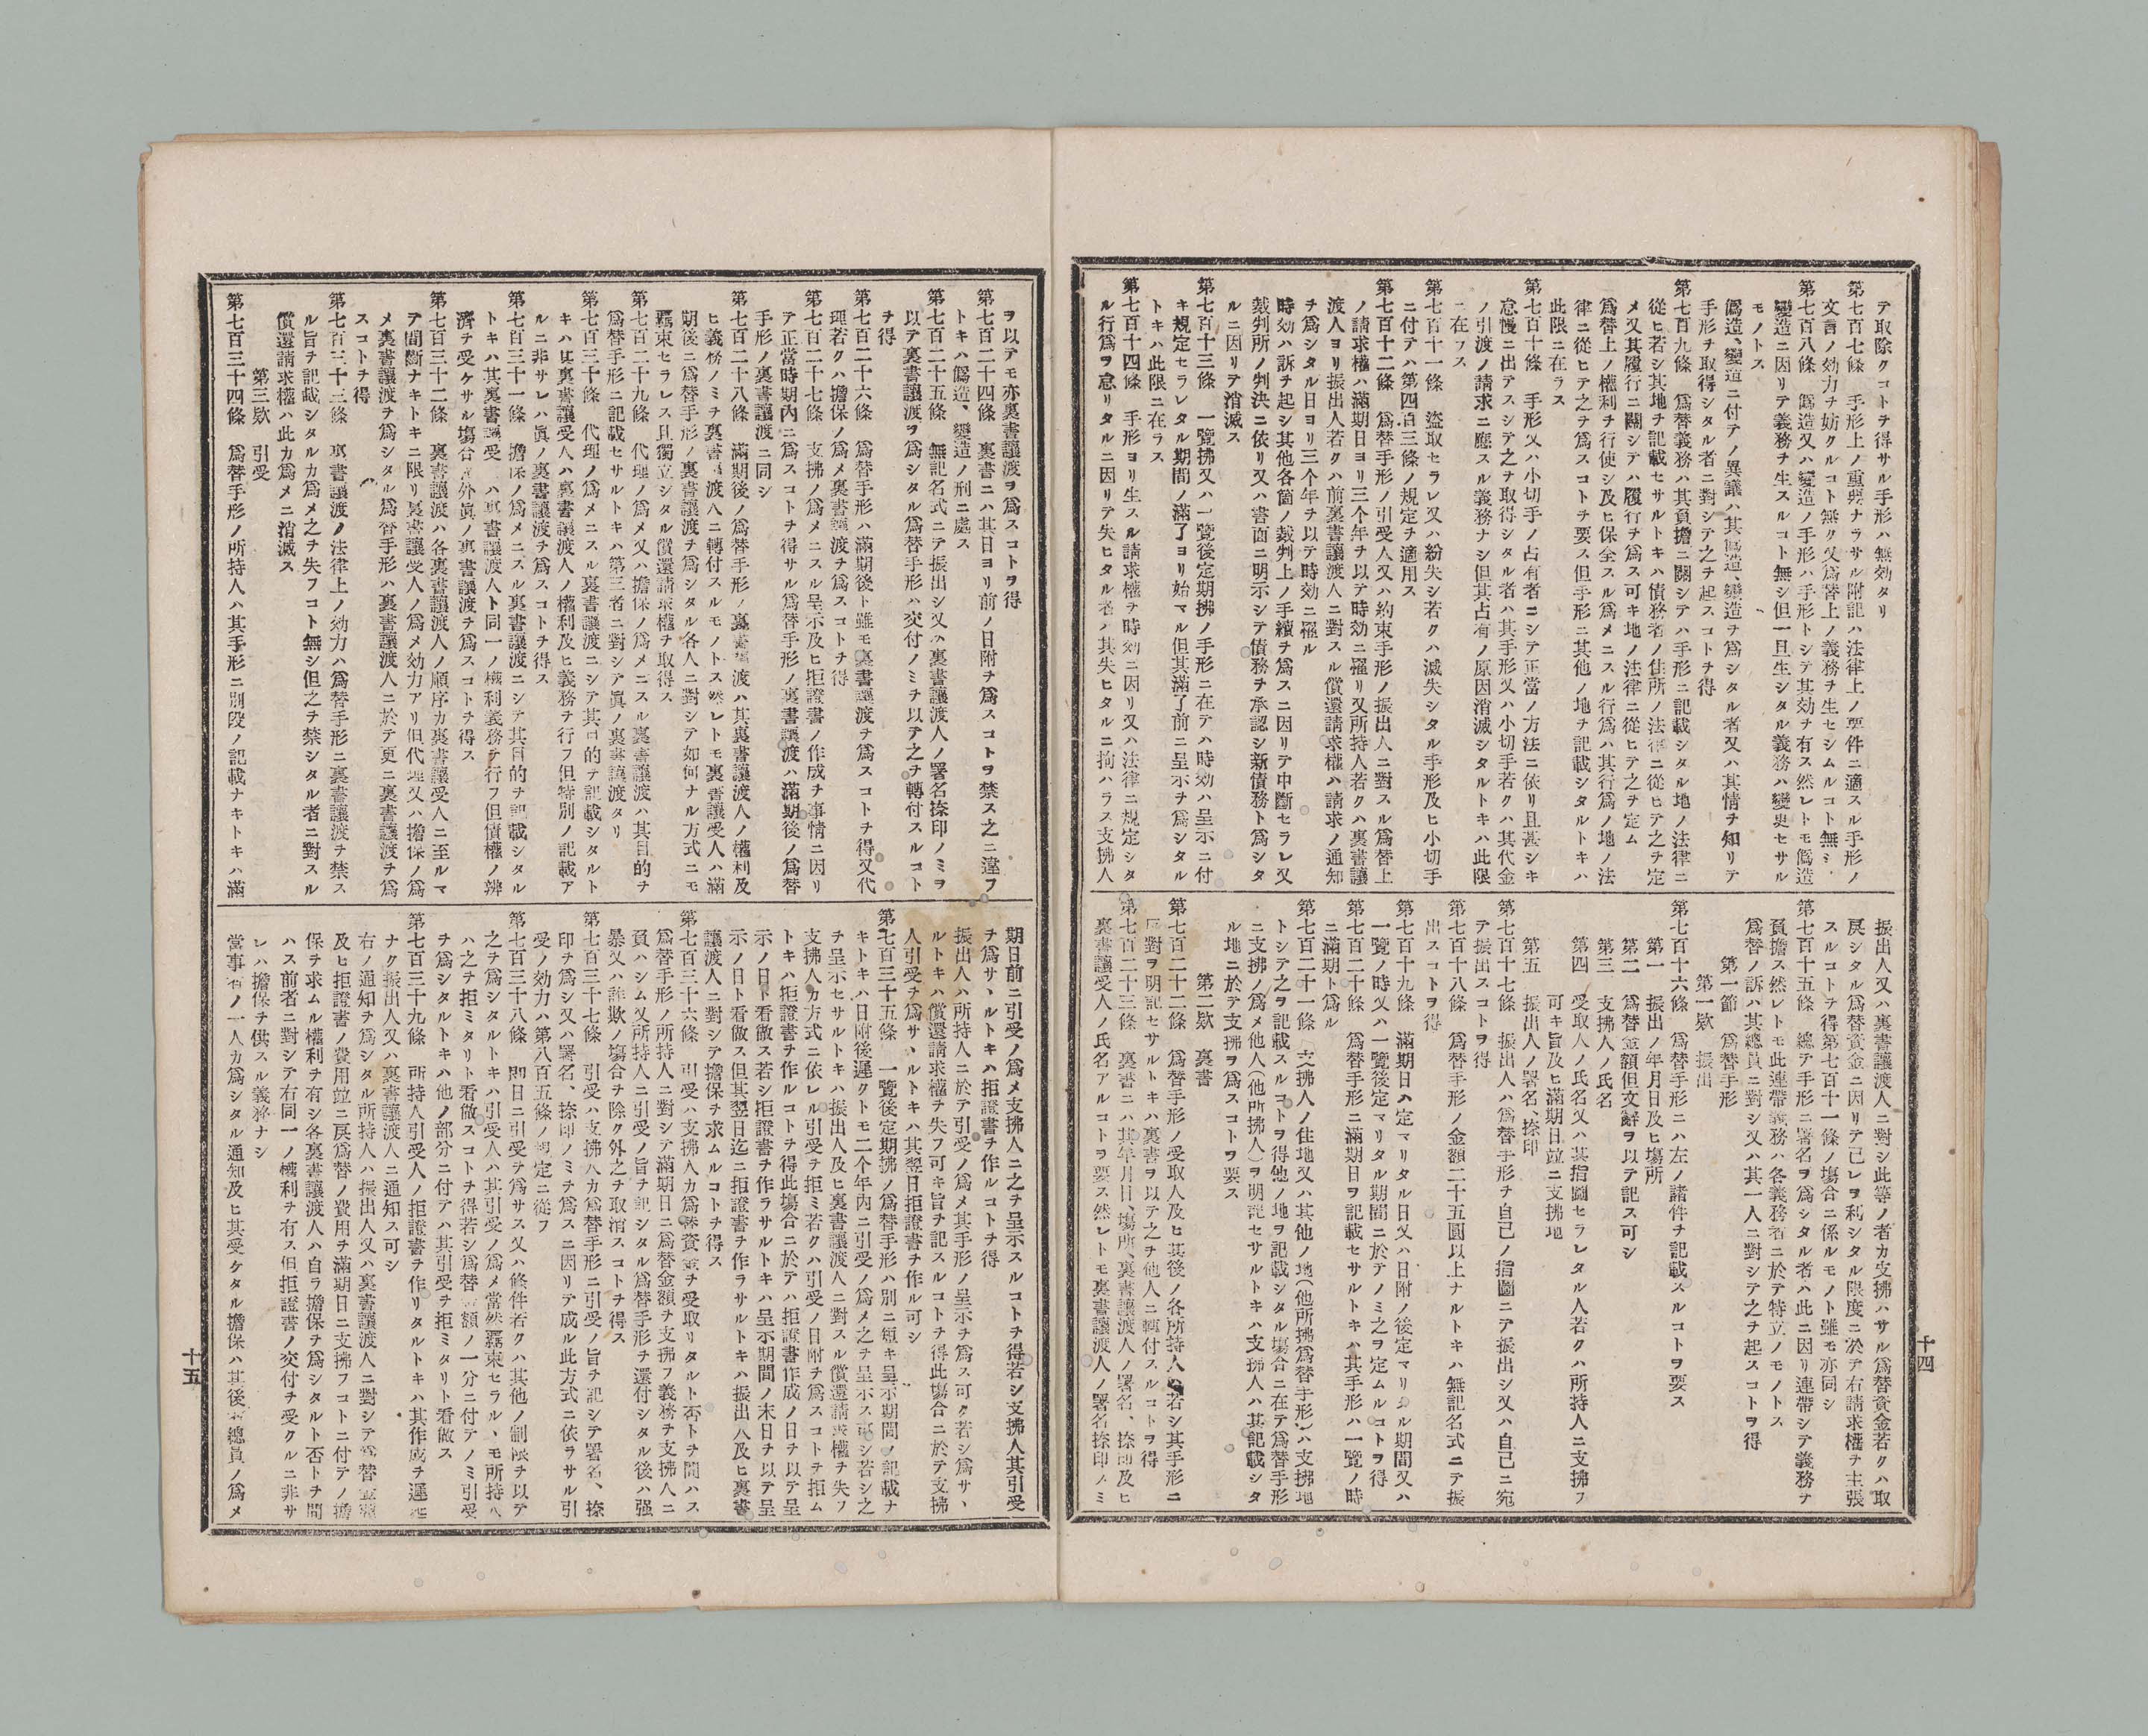 テ取除クコトヲ得サル手形ハ無効タリ
第七百七條　手形上ノ重要ナラサル附記ハ法律上ノ要件ニ適スル手形ノ
文言ノ効力ヲ妨クルコト無ク又爲替上ノ義務ヲ生セシムルコト無シ
第七百八條　僞造又ハ變造ノ手形ハ手形トシテ其効ヲ有ス然レトモ僞造
變造ニ因リテ義務ヲ生スルコト無シ但一旦生シタル義務ハ變更セサル
モノトス
僞造、變造ニ付テノ異議ハ其僞造、變造ヲ爲シタル者又ハ其情ヲ知リテ
手形ヲ取得シタル者ニ對シテ之ヲ起スコトヲ得
第七百九條　爲替義務ハ其負擔ニ關シテハ手形ニ記載シタル地ノ法律ニ
從ヒ若シ其地ヲ記載セサルトキハ債務者ノ住所ノ法律ニ從ヒテ之ヲ定
メ又其履行ニ關シテハ履行ヲ爲ス可キ地ノ法律ニ從ヒテ之ヲ定ム
爲替上ノ權利ヲ行使シ及ヒ保全スル爲メニスル行爲ハ其行爲ノ地ノ法
律ニ從ヒテ之ヲ爲スコトヲ要ス但手形ニ其他ノ地ヲ記載シタルトキハ
此限ニ在ラス
第七百十條　手形又ハ小切手ノ占有者ニシテ正當ノ方法ニ依リ且甚シキ
怠慢ニ出テスシテ之ヲ取得シタル者ハ其手形又ハ小切手若クハ其代金
ノ引渡ノ請求ニ應スル義務ナシ但其占有ノ原因消滅シタルトキハ此限
ニ在ラス
第七百十一條　盜取セラレ又ハ紛失シ若クハ滅失シタル手形及ヒ小切手
ニ付テハ第四百三條ノ規定ヲ適用ス
第七百十二條　爲替手形ノ引受人又ハ約束手形ノ振出人ニ對スル爲替上
ノ請求權ハ滿期日ヨリ三个年ヲ以テ時効ニ罹リ又所持人若クハ裏書讓
渡人ヨリ振出人若クハ前裏書讓渡人ニ對スル償還請求權ハ請求ノ通知
ヲ爲シタル日ヨリ三个年ヲ以テ時効ニ罹ル
時効ハ訴ヲ起シ其他各箇ノ裁判上ノ手續ヲ爲スニ因リテ中斷セラレ又
裁判所ノ判決ニ依リ又ハ書面ニ明示シテ債務ヲ承認シ新債務ト爲シタ
ルニ因リテ消滅ス
第七百十三條　一覽拂又ハ一覽後定期拂ノ手形ニ在テハ時効ハ呈示ニ付
キ規定セラレタル期間ノ滿了ヨリ始マル但其滿了前ニ呈示ヲ爲シタル
トキハ此限ニ在ラス
第七百十四條　手形ヨリ生スル請求權ヲ時効ニ因リ又ハ法律ニ規定シタ
ル行爲ヲ怠リタルニ因リテ失ヒタル者ノ其失ヒタルニ拘ハラス支拂人
振出人又ハ裏書讓渡人ニ對シ此等ノ者カ支拂ハサル爲替資金若クハ取
戾シタル爲替資金ニ因リテ己レヲ利シタル限度ニ於テ右請求權ヲ主張
スルコトヲ得第七百十一條ノ塲合ニ係ルモノト雖モ亦同シ
第七百十五條　總テ手形ニ署名ヲ爲シタル者ハ此ニ因リ連帶シテ義務ヲ
負擔ス然レトモ此連帶義務ハ各義務者ニ於テ特立ノモノトス
爲替ノ訴ハ其總員ニ對シ又ハ其一人ニ對シテ之ヲ起スコトヲ得
第一節　爲替手形
第一欵　振出
第七百十六條　爲替手形ニハ左ノ諸件ヲ記載スルコトヲ要ス
第一　振出ノ年月日及ヒ塲所
第二　爲替金額但文辭ヲ以テ記ス可シ
第三　支拂人ノ氏名
第四　受取人ノ氏名又ハ其指圖セラレタル人若クハ所持人ニ支拂フ
可キ旨及ヒ滿期日竝ニ支拂地
第五　振出人ノ署名、捺印
第七百十七條　振出人ハ爲替手形ヲ自己ノ指圖ニテ振出シ又ハ自己ニ宛
テ振出スコトヲ得
第七百十八條　爲替手形ノ金額二十五圓以上ナルトキハ無記名式ニテ振
出スコトヲ得
第七百十九條　滿期日ハ定マリタル日又ハ日附ノ後定マリタル期間又ハ
一覽ノ時又ハ一覽後定マリタル期間ニ於テノミ之ヲ定ムルコトヲ得
第七百二十條　爲替手形ニ滿期日ヲ記載セサルトキハ其手形ハ一覽ノ時
ニ滿期ト爲ル
第七百二十一條　支拂人ノ住地又ハ其他ノ地(他所拂爲替手形)ハ支拂地
トシテ之ヲ記載スルコトヲ得他ノ地ヲ記載シタル塲合ニ在テ爲替手形
ニ支拂ノ爲メ他人(他所拂人)ヲ明記セサルトキハ支拂人ハ其記載シタ
ル地ニ於テ支拂ヲ爲スコトヲ要ス
第二欵　裏書
第七百二十二條　爲替手形ノ受取人及ヒ其後ノ各所持人ハ若シ其手形ニ
反對ヲ明記セサルトキハ裏書ヲ以テ之ヲ他人ニ轉付スルコトヲ得
第七百二十三條　裏書ニハ其年月日、塲所、裏書讓渡人ノ署名、捺印及ヒ
裏書讓受人ノ氏名アルコトヲ要ス然レトモ裏書讓渡人ノ署名捺印ノミ
十四
ヲ以テモ亦裏書讓渡ヲ爲スコトヲ得
第七百二十四條　裏書ニハ其日ヨリ前ノ日附ヲ爲スコトヲ禁ス之ニ違フ
トキハ僞造、變造ノ刑ニ處ス
第七百二十五條　無記名式ニテ振出シ又ハ裏書讓渡人ノ署名捺印ノミヲ
以テ裏書讓渡ヲ爲シタル爲替手形ハ交付ノミヲ以テ之ヲ轉付スルコト
ヲ得
第七百二十六條　爲替手形ハ滿期後ト雖モ裏書讓渡ヲ爲スコトヲ得又代
理若クハ擔保ノ爲メ裏書讓渡ヲ爲スコトヲ得
第七百二十七條　支拂ノ爲メニスル呈示及ヒ拒證書ノ作成ヲ事情ニ因リ
テ正當時期內ニ爲スコトヲ得サル爲替手形ノ裏書讓渡ハ滿期後ノ爲替
手形ノ裏書讓渡ニ同シ
第七百二十八條　滿期後ノ爲替手形ノ裏書讓渡ハ其裏書讓渡人ノ權利及
ヒ義務ノミヲ裏書讓渡人ニ轉付スルモノトス然レトモ裏書讓受人ハ滿
期後ニ爲替手形ノ裏書讓渡ヲ爲シタル各人ニ對シテ如何ナル方式ニモ
羈束セラレス且獨立シタル償還請求權ヲ取得ス
第七百二十九條　代理ノ爲メ又ハ擔保ノ爲メニスル裏書讓渡ハ其目的ヲ
爲替手形ニ記載セサルトキハ第三者ニ對シテ眞ノ裏書讓渡タリ
第七百三十條　代理ノ爲メニスル裏書讓渡ニシテ其目的ヲ記載シタルト
キハ其裏書讓受人ハ裏書讓渡人ノ權利及ヒ義務ヲ行フ但特別ノ記載ア
ルニ非サレハ眞ノ裏書讓渡ヲ爲スコトヲ得ス
第七百三十一條　擔保ノ爲メニスル裏書讓渡ニシテ其目的ヲ記載シタル
トキハ其裏書讓受人ハ裏書讓渡人ト同一ノ權利義務ヲ行フ但債權ノ辨
濟ヲ受ケサル塲合ノ外眞ノ裏書讓渡ヲ爲スコトヲ得ス
第七百三十二條　裏書讓渡ハ各裏書讓渡人ノ順序カ裏書讓受人ニ至ルマ
テ間斷ナキトキニ限リ裏書讓受人ノ爲メ効力アリ但代理又ハ擔保ノ爲
メ裏書讓渡ヲ爲シタル爲替手形ハ裏書讓渡人ニ於テ更ニ裏書讓渡ヲ爲
スコトヲ得
第七百三十三條　裏書讓渡ノ法律上ノ効力ハ爲替手形ニ裏書讓渡ヲ禁ス
ル旨ヲ記載シタルカ爲メ之ヲ失フコト無シ但之ヲ禁シタル者ニ對スル
償還請求權ハ此カ爲メニ消滅ス
第三欵　引受
第七百三十四條　爲替手形ノ所持人ハ其手形ニ別段ノ記載ナキトキハ滿
期日前ニ引受ノ爲メ支拂人ニ之ヲ呈示スルコトヲ得若シ支拂人其引受
ヲ爲サヽルトキハ拒證書ヲ作ルコトヲ得
振出人ハ所持人ニ於テ引受ノ爲メ其手形ノ呈示ヲ爲ス可ク若シ爲サヽ
ルトキハ償還請求權ヲ失フ可キ旨ヲ記スルコトヲ得此塲合ニ於テ支拂
人引受ヲ爲サヽルトキハ其翌日拒證書ヲ作ル可シ
第七百三十五條　一覽後定期拂ノ爲替手形ハ別ニ短キ呈示期間ノ記載ナ
キトキハ日附後遲クトモ二个年內ニ引受ノ爲メ之ヲ呈示ス可シ若シ之
ヲ呈示セサルトキハ振出人及ヒ裏書讓渡人ニ對スル償還請求權ヲ失フ
支拂人カ方式ニ依レル引受ヲ拒ミ若クハ引受ノ日附ヲ爲スコトヲ拒ム
トキハ拒證書ヲ作ルコトヲ得此塲合ニ於テハ拒證書作成ノ日ヲ以テ呈
示ノ日ト看做ス若シ拒證書ヲ作ラサルトキハ呈示期間ノ末日ヲ以テ呈
示ノ日ト看做ス但其翌日迄ニ拒證書ヲ作ラサルトキハ振出人及ヒ裏書
讓渡人ニ對シテ擔保ヲ求ムルコトヲ得ス
第七百三十六條　引受ハ支拂人カ爲替資金ヲ受取リタルト否トヲ問ハス
爲替手形ノ所持人ニ對シテ滿期日ニ爲替金額ヲ支拂フ義務ヲ支拂人ニ
負ハシム又所持人ニ引受ノ旨ヲ記シタル爲替手形ヲ還付シタル後ハ强
暴又ハ詐欺ノ塲合ヲ除ク外之ヲ取消スコトヲ得ス
第七百三十七條　引受ハ支拂人カ爲替手形ニ引受ノ旨ヲ記シテ署名、捺
印ヲ爲シ又ハ署名、捺印ノミヲ爲スニ因リテ成ル此方式ニ依ラサル引
受ノ効力ハ第八百五條ノ規定ニ從フ
第七百三十八條　卽日ニ引受ヲ爲サス又ハ條件若クハ其他ノ制限ヲ以テ
之ヲ爲シタルトキハ引受人ハ其引受ノ爲メ當然羈束セラルヽモ所持人
ハ之ヲ拒ミタリト看做スコトヲ得若シ爲替金額ノ一分ニ付テノミ引受
ヲ爲シタルトキハ他ノ部分ニ付テハ其引受ヲ拒ミタリト看做ス
第七百三十九條　所持人引受人ノ拒證書ヲ作リタルトキハ其作成ヲ遲延
ナク振出人又ハ裏書讓渡人ニ通知ス可シ
右ノ通知ヲ爲シタル所持人ハ振出人又ハ裏書讓渡人ニ對シテ爲替金額
及ヒ拒證書ノ費用竝ニ戾爲替ノ費用ヲ滿期日ニ支拂フコトニ付テノ擔
保ヲ求ムル權利ヲ有シ各裏書讓渡人ハ自ラ擔保ヲ爲シタルト否トヲ問
ハス前者ニ對シテ右同一ノ權利ヲ有ス但拒證書ノ交付ヲ受クルニ非サ
レハ擔保ヲ供スル義務ナシ
當事者ノ一人カ爲シタル通知及ヒ其受ケタル擔保ハ其後者總員ノ爲メ
十五